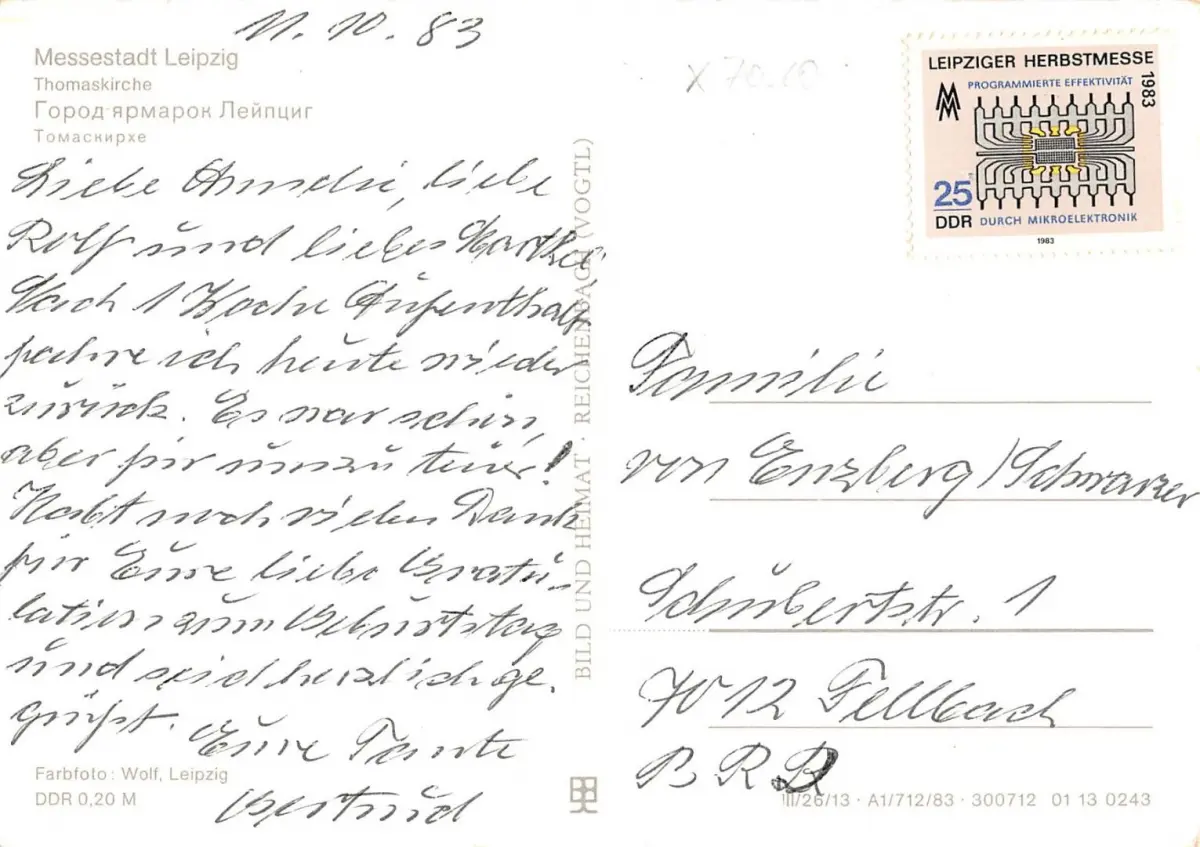 11.10.83
Messestadt Leipzig
Thomaskirche
Город-ярмарок Лейпциг
Томаскирхе
Liebe, liebe
Rolf und liebes
Nach 1 Woche Aufenthalt
fahre ich heute wieder
zurück. Es war schön,
aber für uns zu teuer!
Habt noch vielen Dank
für Eure liebe Gratu-
lation zum Geburtstag
und seid herzlich ge-
grüßt.
Eure Tante
Gertrud
Farbfoto: Wolf, Leipzig
DDR 0,20 M
BILD UND HEIMAT · REICHENBACH (VOGTL)
X 70.10
LEIPZIGER HERBSTMESSE
1983
PROGRAMMIERTE EFFEKTIVITÄT
MM
25
DDR
DURCH MIKROELEKTRONIK
1983
Familie
von Enzberg/Schwarzer
Schubertstr. 1
7012 Fellbach
BRD
III/26/13 · A1/712/83 · 300712 01 13 0243